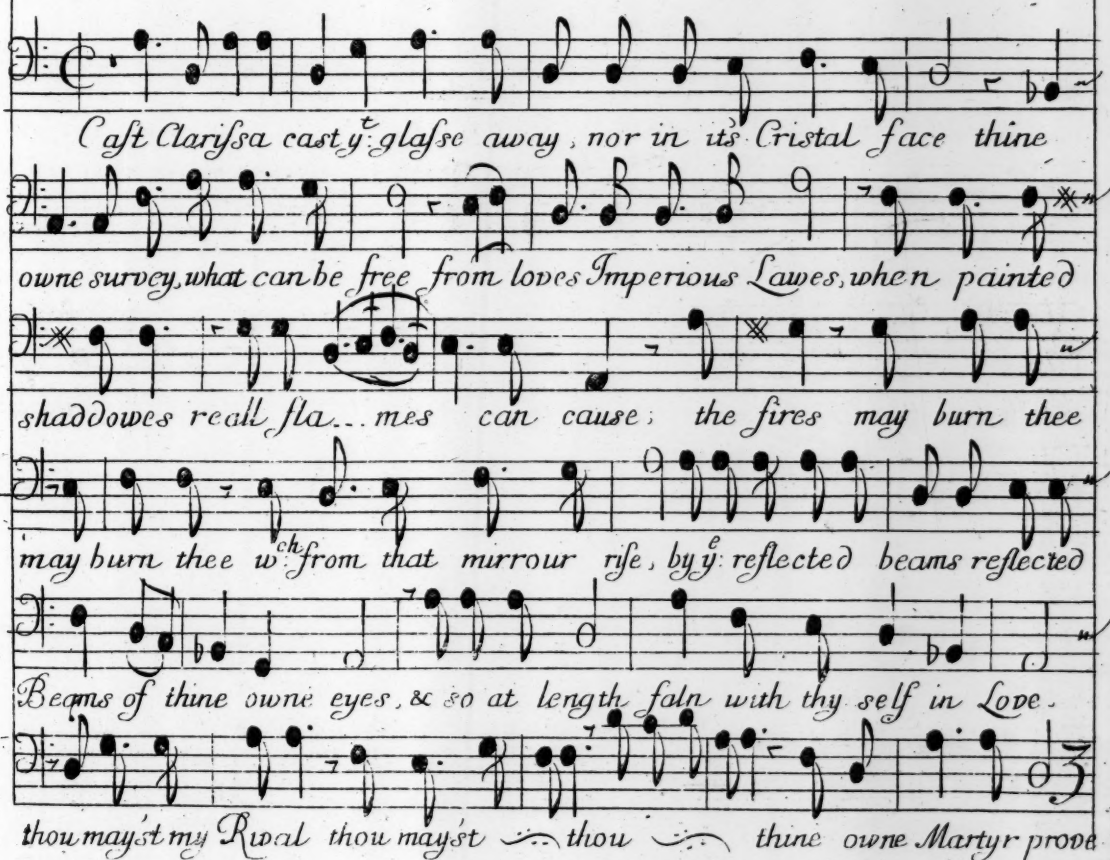 Caſt Clariſsa cast yͭ: glaſse away, nor in it's Cristal face thine
owne survey, what can be free from loves Imperious Lawes, when painted
shaddowes reall fla...mes can cause; the fires may burn thee
may burn thee wͨͪ: from that mirrour riſe, by yͤ: reflected beams reflected
Beams of thine owne eyes, & so at length faln with thy self in Love.
thou may'st my Rival thou may'st thou thine owne Martyr prove
3